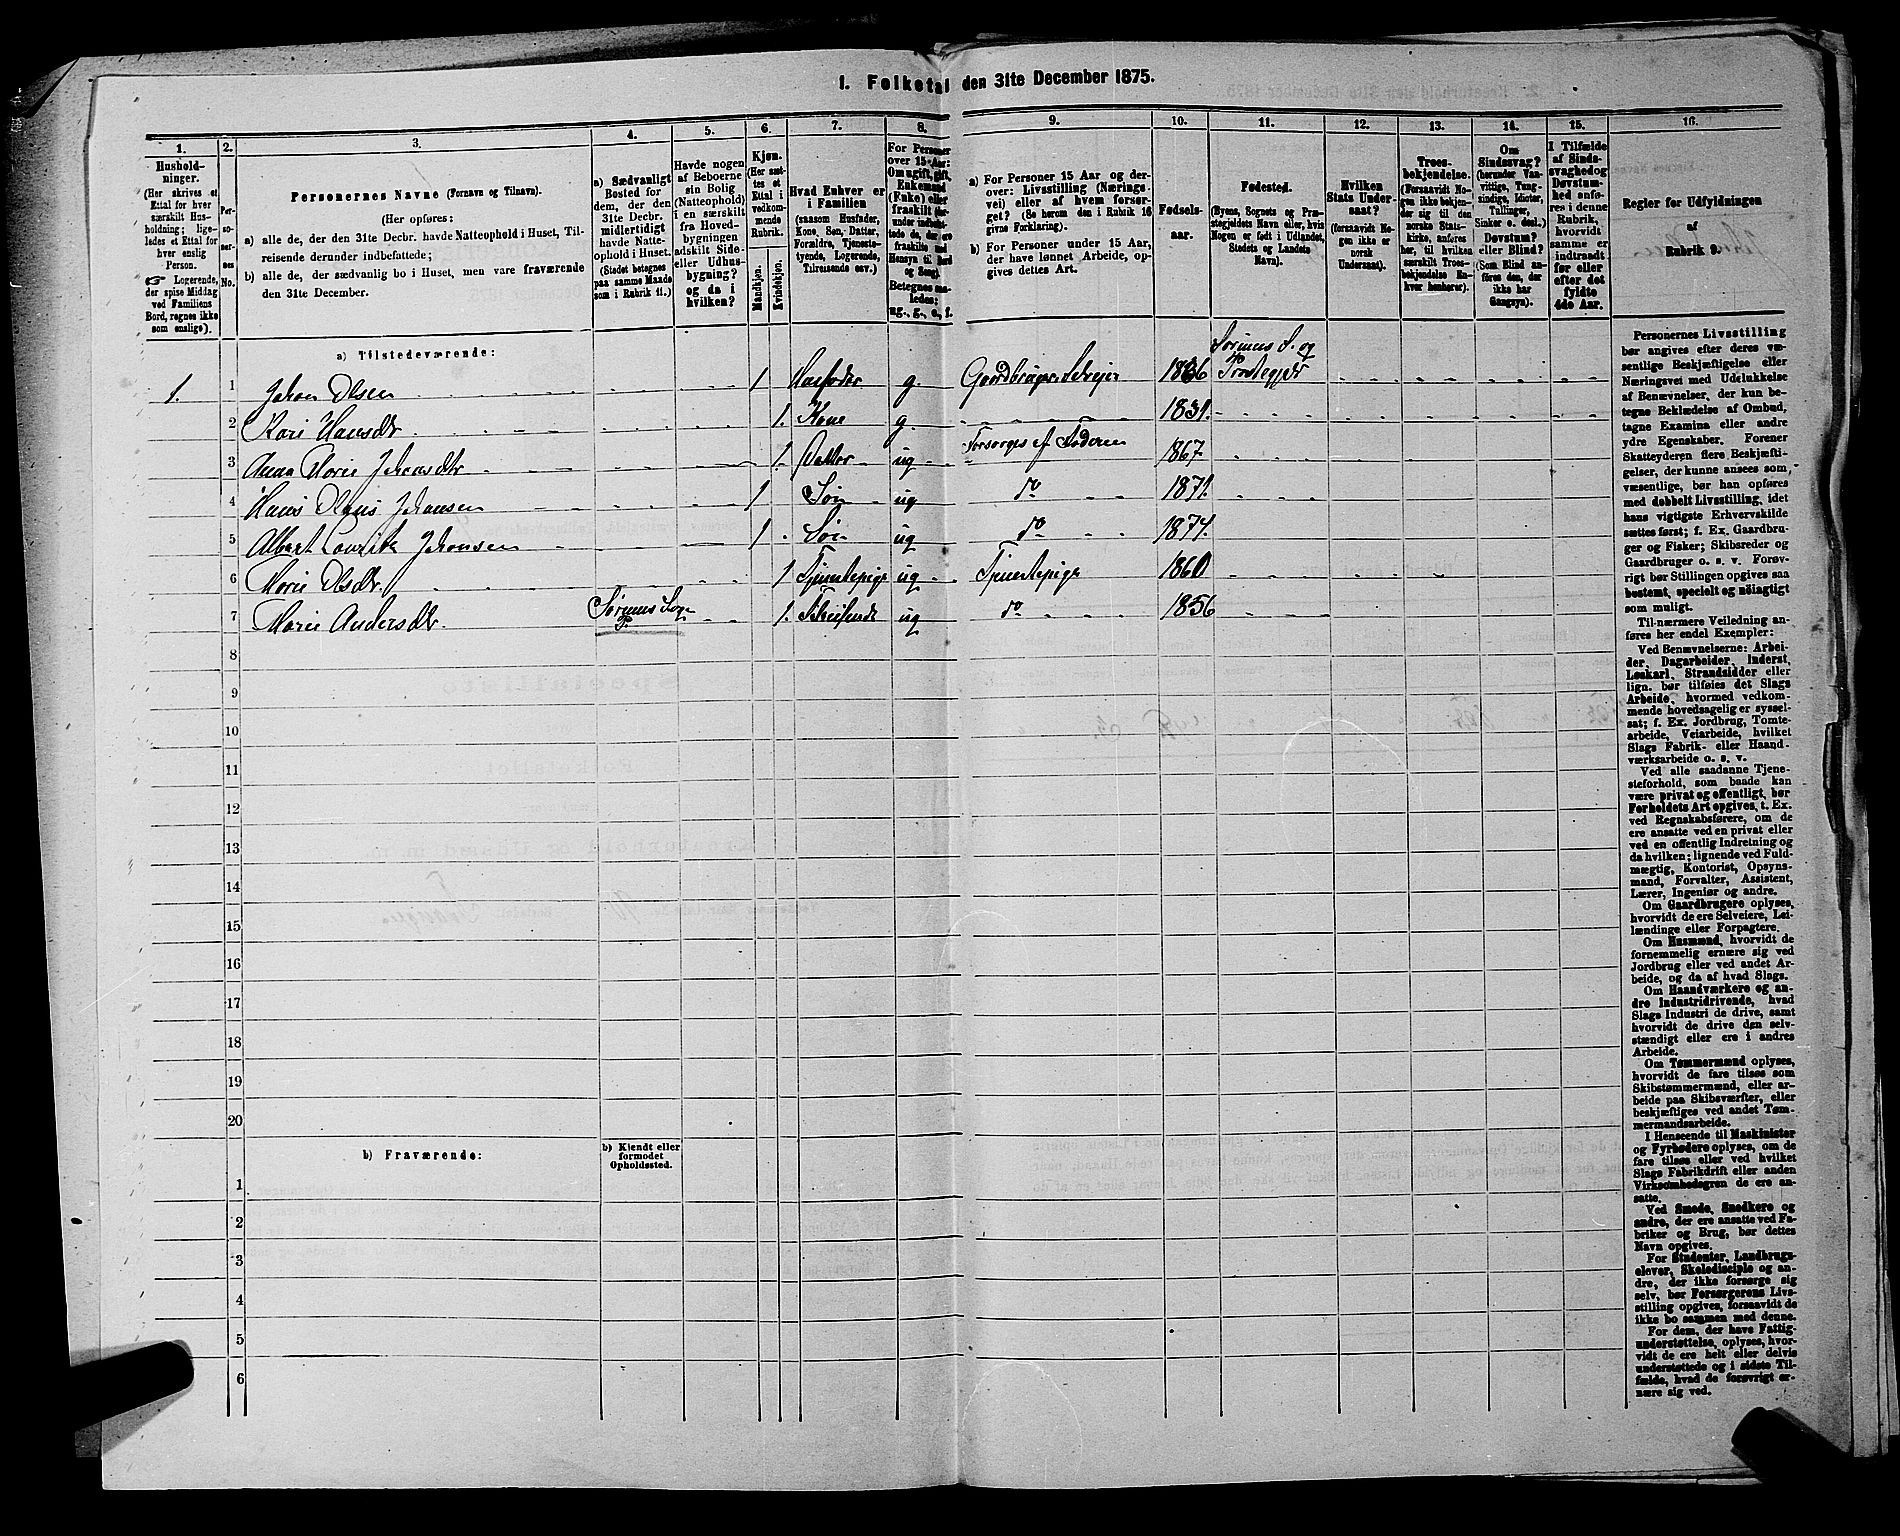 1. Folketal den 31te December 1875.
1. 2. 3. 4. 5. 6. 7. 8. 9. 10. 11. 12. 13. 14. 15. 16.
Hushold-
ninger.
(Her skrives et
Ettal for hver
særskilt Hus-
holdning; lige-
ledes et Ettal for
hver enslig
Person.
☞ Logerende,
der spise Middag
ved Familiens
Bord, regnes ikke
som enslige).
Per-
soner-
nes
No.
Personernes Navne (Fornavn og Tilnavn).
(Her opføres:
a) alle de, der den 31te Decbr. havde Natteophold i Huset, Til-
reisende derunder indbefattede;
b) alle de, der sædvanlig bo i Huset, men vare fraværende
den 31te December.
a) Sædvanligt
Bosted for
dem, der den
31te Decbr.
midlertidigt
havde Natte-
ophold i Huset.
(Stedet betegnes
paa samme Maade
som i Rubrik 11.)
Havde nogen
af Beboerne
sin Bolig
(Natteophold)
i en særskilt
fra Hoved-
bygningen
adskilt Side-
eller Udhus-
bygning?
og da i
hvilken?
Kjøn.
(Her sæt-
tes et
Ettal i
vedkom-
mende
Rubrik.
Mandkjøn.
Kvindekjøn.
Hvad Enhver er
i Familien
(saasom Husfader,
Kone, Søn, Datter,
Forældre, Tjeneste-
tyende, Logerende,
Tilreisende osv.)
For Personer
over 15 Aar:
Om ugift, gift,
Enkemand
(Enke) eller
fraskilt
Betegnes saa-
ledes:
ug., g., e., f.
a) For Personer 15 Aar og der-
over: Livsstilling (Nærings-
vei) eller af hvem forsør-
get? (Se herom den i Rubrik 16
givne Forklaring).
b) For Personer under 15 Aar,
der have lønnet Arbeide, op-
gives dettes Art.
Fødsels-
aar.
Fødested.
(Byens, Sognets og Præ-
stegjeldets Navn eller, hvis
Nogen er født i Udlandet,
Stedets og Landets
Navn).
Hvilken
Stats Under-
saat?
(forsaavidt No-
gen ikke er
norsk
Undersaat).
Troes-
bekjendelse.
(Forsaavidt No-
gen ikke bekjen-
der sig til den
norske Stats-
kirke, anføres
her, til hvilken
særskilt Troes-
bekjendelse En-
hver henhører).
Om
Sindssvag?
(herunder Van-
vittige, Tung-
sindige, Idioter,
Tullinger,
Sinker o. desl.)
Døvstum?
eller Blind?
(Som Blind an-
føres den, der
ikke har
Gangsyn).
I Tilfælde
af Sinds-
svaghed og
Døvstum-
hed anfø-
res i denne
Rubrik,
hvorvidt
samme er
indtraadt
før eller
efter det
fyldte
4de Aar.
Regler for Udfyldningen
af
Rubrik 9.
a) Tilstedeværende:
1. 1 Johan Olsen 1 Husfader g. Gaardbruger Selveier 1836 Sørums S. og Præstegjæld
2 Kari Hansdtr 1. Kone g. 1831.
3 Anna Marie Johansdtr 1. Datter ug Forsørges af Faderen 1867
4 Hans Olaus Johansen 1 Søn ug do 1871.
5 Albert Lauritz Johansen 1 Søn ug do 1874.
6 Marie Olsdtr 1 Tjenestepige ug Tjenestepige 1860
7 Marie Andersdtr Sørums Sogn P. 1. Tilreisende ug do 1856
8
9
10
11
12
13
14
15
16
17
18
19
20
b) Fraværende:
b) Kjendt eller
formodet
Opholdssted.
1
2
3
4
5
6
Personernes Livsstilling
bør angives efter deres væ-
sentlige Beskjæftigelse eller
Næringsvei med Udelukkelse
af Benævnelser, der kun be-
tegne Beklædelse af Ombud,
tagne Examina eller andre
ydre Egenskaber. Forener
Skatteyderen flere Beskjæfti-
gelser, der kunne ansees som
væsentlige, bør han opføres
med dobbelt Livsstilling, idet
hans vigtigste Erhvervskilde
sættes først; f. Ex. Gaardbru-
ger og Fisker; Skibsreder og
Gaardbruger o. s. v. Forøv-
rigt bør Stillingen opgives saa
bestemt, specielt og nöiagtigt
som muligt.
Til nærmere Veiledning an-
føres her endel Exempler:
Ved Benævnelserne: Arbei-
der, Dagarbeider, Inderst,
Løskarl, Strandsidder eller
lign. bør tilføies det Slags
Arbeide, hvormed vedkom-
mende hovedsagelig er syssel-
sat; f. Ex. Jordbrug, Tomte-
arbeide, Veiarbeide, hvilket
Slags Fabrik- eller Haand-
værksarbeide o. s. v.
Ved alle saadanne Tjene-
steforhold, som baade kan
være privat og offentligt, bør
Forholdets Art opgives, t. Ex.
ved Regnskabsførere, om de
ere ansatte ved en privat eller
ved en offentlig Indretning og
da hvilken; lignende ved Fuld-
mægtig, Kontorist, Opsyns-
mand, Forvalter, Assistent,
Lærer, Ingeniør og andre.
Om Gaardbrugere oplyses,
hvorvidt de ere Selveiere, Lei-
lændinge eller Forpagtere.
Om Husmænd, hvorvidt de
fornemmelig ernære sig ved
Jordbrug eller ved andet Ar-
beide, og da af hvad Slags.
Om Haandværkere og an-
dre Industridrivende, hvad
Slags Industri de drive, samt
hvorvidt de drive den selv-
stændigt eller ere i andres
Arbeide.
Om Tømmermænd oplyses,
hvorvidt de fare tilsøs som
Skibstømmermænd, eller ar-
beide paa Skibsværfter, eller
beskjæftiges ved andet Tøm-
mermandsarbeide.
I Henseende til Maskinister
og Fyrbødere oplyses, om de
fare tilsøs eller ved hvilket
Slags Fabrikdrift eller anden
Virksomhedsgren de ere an-
satte.
Ved Smede, Snedkere og
andre, der ere ansatte ved Fa-
briker og Brug, bør dettes
Navn opgives.
For Studenter, Landbrugs-
elever, Skoledisciple og an-
dre, der ikke forsørge sig
selv, bør Forsørgerens Livs-
stilling opgives, forsaavidt de
ikke bo sammen med denne.
For dem, der have Fattig-
understøttelse, oplyses, hvor-
vidt de ere helt eller delvis
understøttede og i sidste Til-
fælde, hvad de forøvrigt er-
nære sig ved.